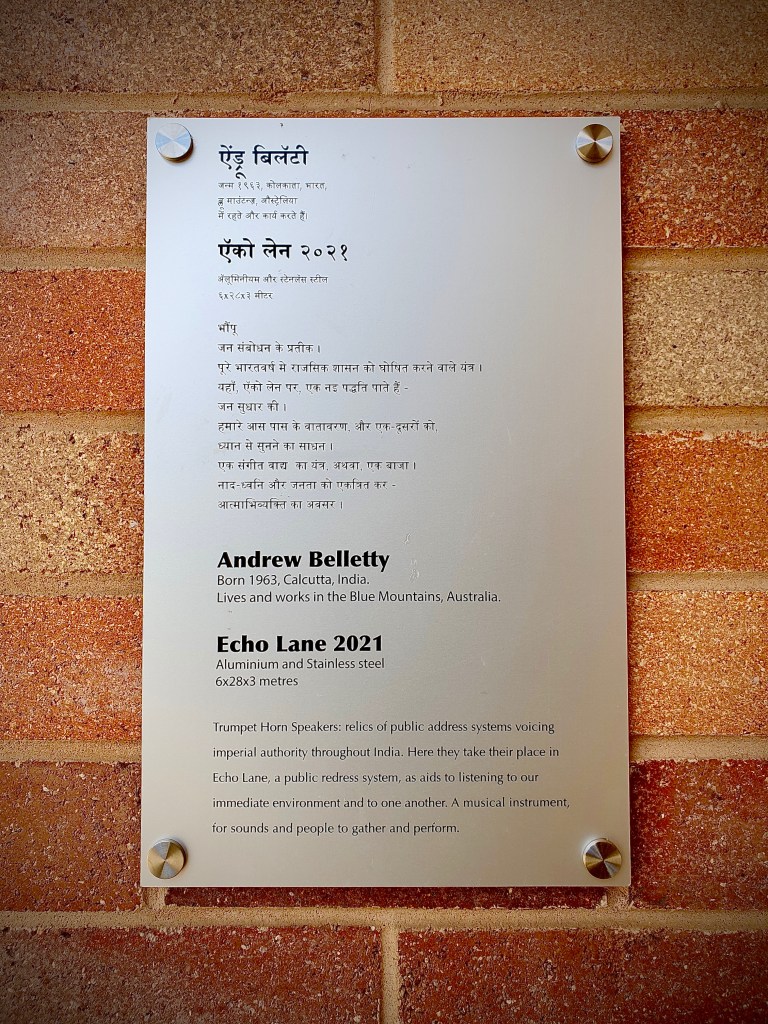 ऐंड्रू बिलॅटी
जन्म १९६३, कोलकाता, भारत,
ब्लू माउंटन्ज़, औस्ट्रेलिया
में रहते और कार्य करते हैं।
ऍको लेन २०२१
ॲलुमिनीयम और स्टेनलेस स्टील
६x२८x३ मीटर
भौंपू
जन संबोधन के प्रतीक।
पूरे भारतवर्ष मे राजसिक शासन को घोषित करने वाले यंत्र।
यहाँ, ऍको लेन पर, एक नइ पद्धति पाते हैं -
जन सुधार की।
हमारे आस पास के वातावरण, और एक-दूसरों को,
ध्यान से सुनने का साधन।
एक संगीत वाद्य का यंत्र, अथवा, एक बाजा।
नाद-ध्वनि और जनता को एकत्रित कर -
आत्माभिव्यक्ति का अवसर।
Andrew Belletty
Born 1963, Calcutta, India.
Lives and works in the Blue Mountains, Australia.
Echo Lane 2021
Aluminium and Stainless steel
6x28x3 metres
Trumpet Horn Speakers: relics of public address systems voicing
imperial authority throughout India. Here they take their place in
Echo Lane, a public redress system, as aids to listening to our
immediate environment and to one another. A musical instrument,
for sounds and people to gather and perform.